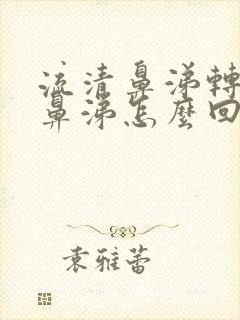 流清鼻涕轉
鼻涕怎麼回
袁雅蕾